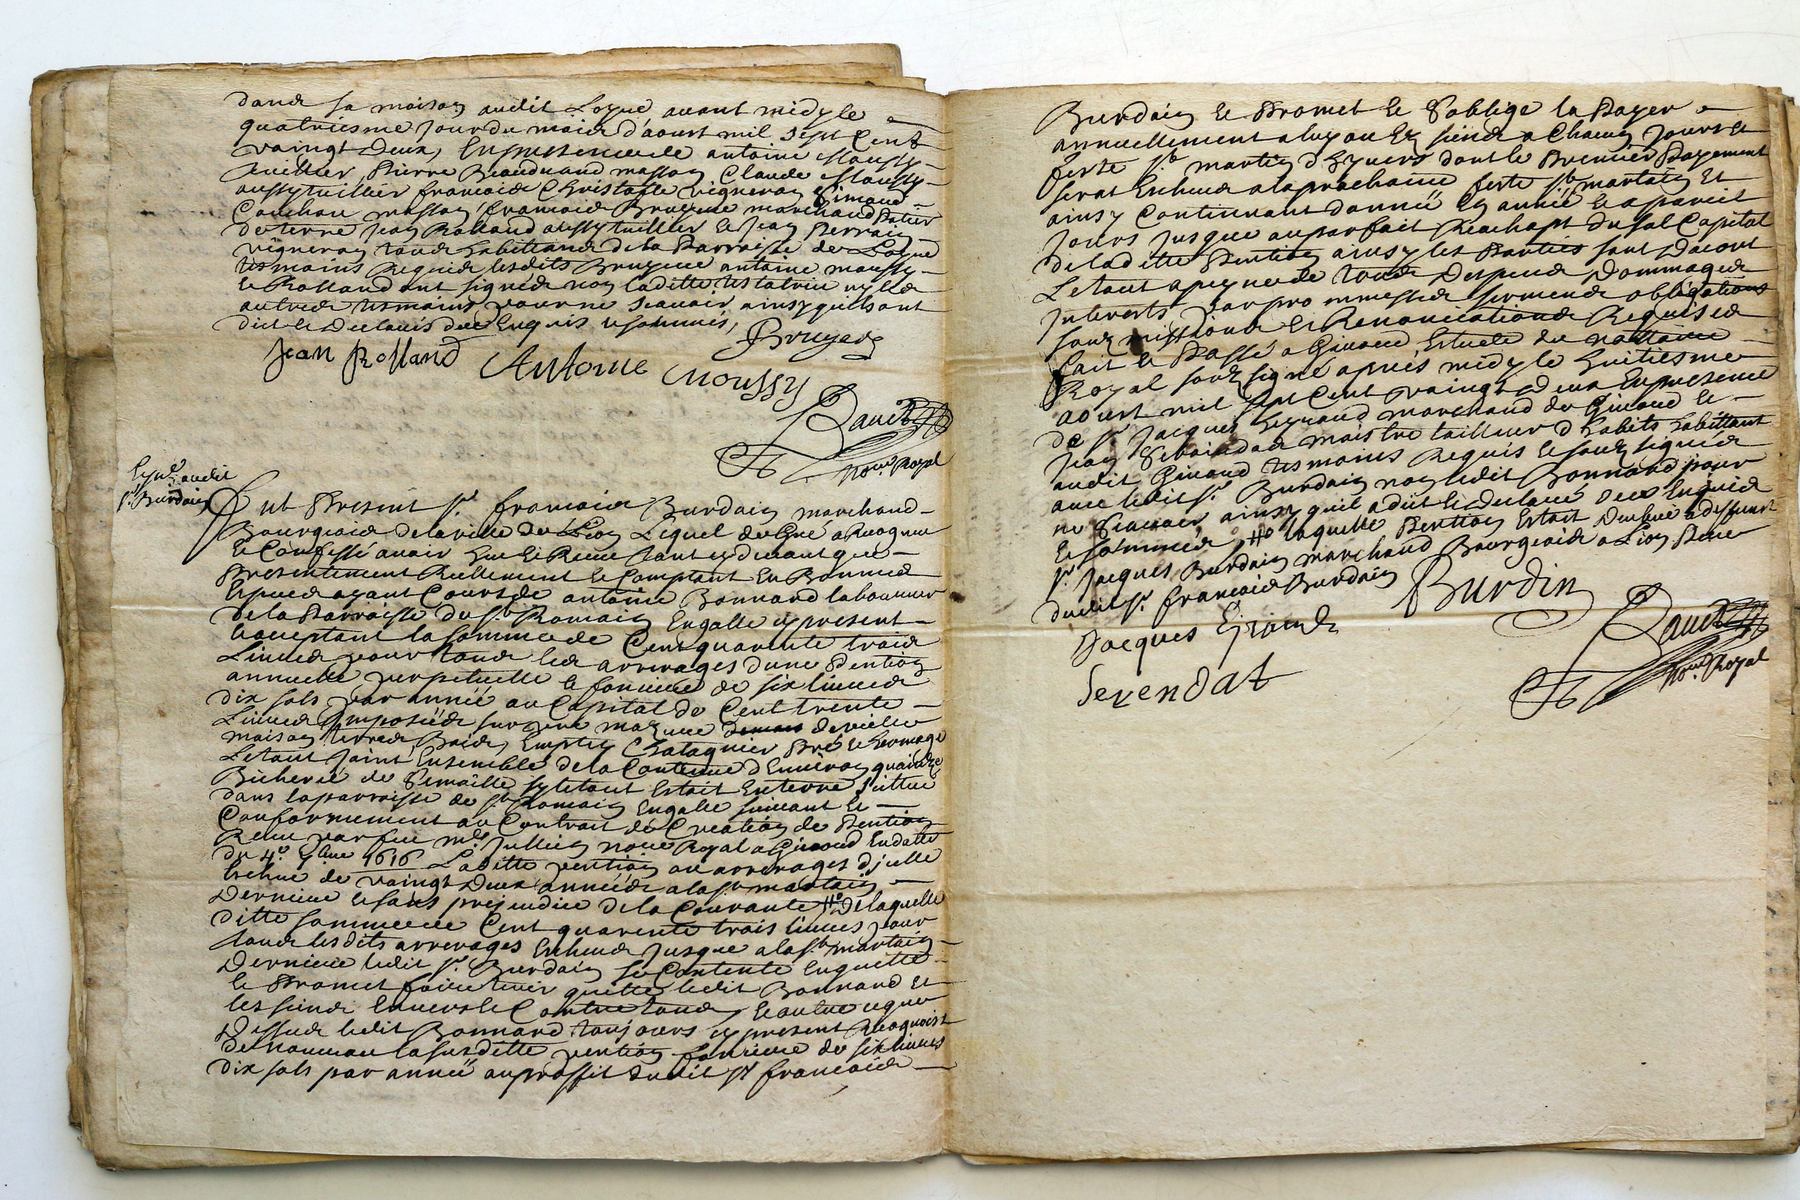 dans sa maison audit Loyre avant midy le
quatriesme jour du mois d'aoust mil sept cent
vaingt deux, en presence de antoine Moussy
tuillier Pierre Beaudrand masson Claude Moussy
aussy tuillier francois Christofle vigneron Simond
Couchou masson francois Bruyere marchand Potier
de terre Jean Rolland aussy tuillier et Jean Perrain
vigneron tous habittans de la Parroisse de Loyre
tesmoins Requis lesdits Bruyere antoine moussy
et Rolland ont signés non laditte testatrice ny les
autres tesmoins pour ne scavoir ainsy quils ont
dit et declairé de ce Enquis et sommés,
Jean Rolland Antoine moussy Bruyere
Not Royal
audit
Sr Burdain
fut Present Sr francois Burdain marchand
Bourgeois de la ville de Lion Lequel de gré a Recognu
et Confessé avoir Eu et Receu tant cy devant que
Presentement Reellement et Comptant En Bonnes
Espece ayant Cours de antoine Bonnard laboureur
de la Parroisse de St Romain Engalle cy present
et acceptant la somme de Cent quarente trois
Livres pour tous les arrerages d'une Pention
annuelle perpetuelle et fonciere de six livres
dix sols par année au Capital de Cent trente
Livres Imposée sur une mazure de vielle
maison terres Bois, Chatagnier Pré et hermage
Le tout Joint Ensemble de la Contenue d'Environ quainze
Bicherée de Semaille sy le tout Estoit En terre scittué
dans la parroisse de St Romain Engalle suivant et
Conformement au Contrait de Creation de Pention
Receu par feu me Jullien notre Royal a Givord En datte
du 4e 1616 Laditte pention ou arrerages d'jcelle
Echeue de vaingt deux années a la St martain
Derniere et sans prejudice de la Courante De laquelle
ditte somme de Cent quarente trois livres pour
tous lesdits arrerages Echeus jusque a la St martain
Derniere ledit Sr Burdain se Contente Enquitte
et Promet faire tenir quitte ledit Bonnard et
les siens Envers et Contre tous, et autre que
Dessus ledit Bonnard toujours cy present Recognoist
de nouveau la susditte pention fonciere de six livres
dix sols par année au proffit dudit Sr francois
Burdain et Promet et s'oblige la Payer
annuellement a luy ou Es siens a Chacun Jours et
feste St martin d'hyvers dont le Premier Payement
serat Echeus a la prochaine feste St martain et
ainsy Continuant d'année En année a pareil
Jours Jusque au parfait Reachapt du sol Capital
de laditte Pention ainsy les Parties sont Dacort
Le tout a peyne de tous Despens Dommages
Interests par prommesses sermens obligations
soub missions et Renonciations Requises
fait et Passé a Givord Estude du nottaire
Royal soub signé aprés midy le huitiesme
aoust mil sept Cent vaingt deux En presence
de Sr Jacques marchand de Givord et
Jean maistre tailleur d'habits habittant
audit Givord tesmoins Requis et soub signés
avec ledit Sr Burdain non ledit Bonnard pour
ne scavoir ainsy quil a dit et declaré de ce Enquis
et sommés laquelle Pention Estoit deubue a deffunt
Sr Jacques Burdain marchand Bourgeois a Lion Pere
dudit Sr francois Burdain Burdin
Jacques
Sevendat
Not Royal